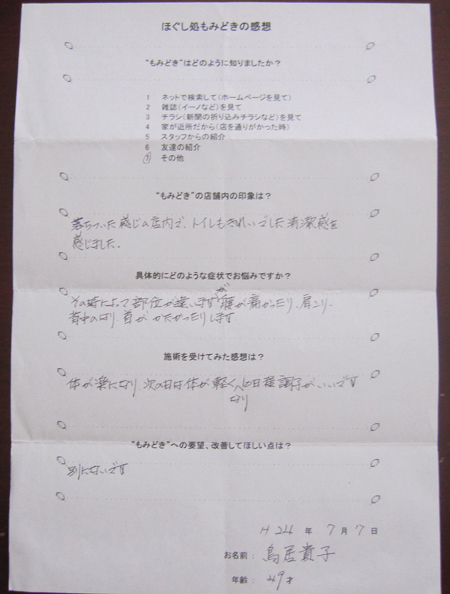 ほぐし処もみどきの感想
"もみどき"はどのように知りましたか？
1 ネットで検索して(ホームページを見て)
2 雑誌(イーノなど)を見て
3 チラシ(新聞の折り込みチラシなど)を見て
4 家が近所だから(店を通りがかった時)
5 スタッフからの紹介
6 友達の紹介
7 その他
"もみどき"の店舗内の印象は？
落ちついた感じの店内で、トイレもきれいでした 清潔感を
感じました。
具体的にどのような症状でお悩みですか？
その時によって部位が違いますが 腰が痛かったり、肩こり、
背中のはり 首が かたかったりします
施術を受けてみた感想は？
体が楽になり 次の日は体が軽くなり 調子がいいです
"もみどき"への要望、改善してほしい点は？
別にないです
H24 年 7月 7日
お名前： 鳥居貴子
年齢： 49才